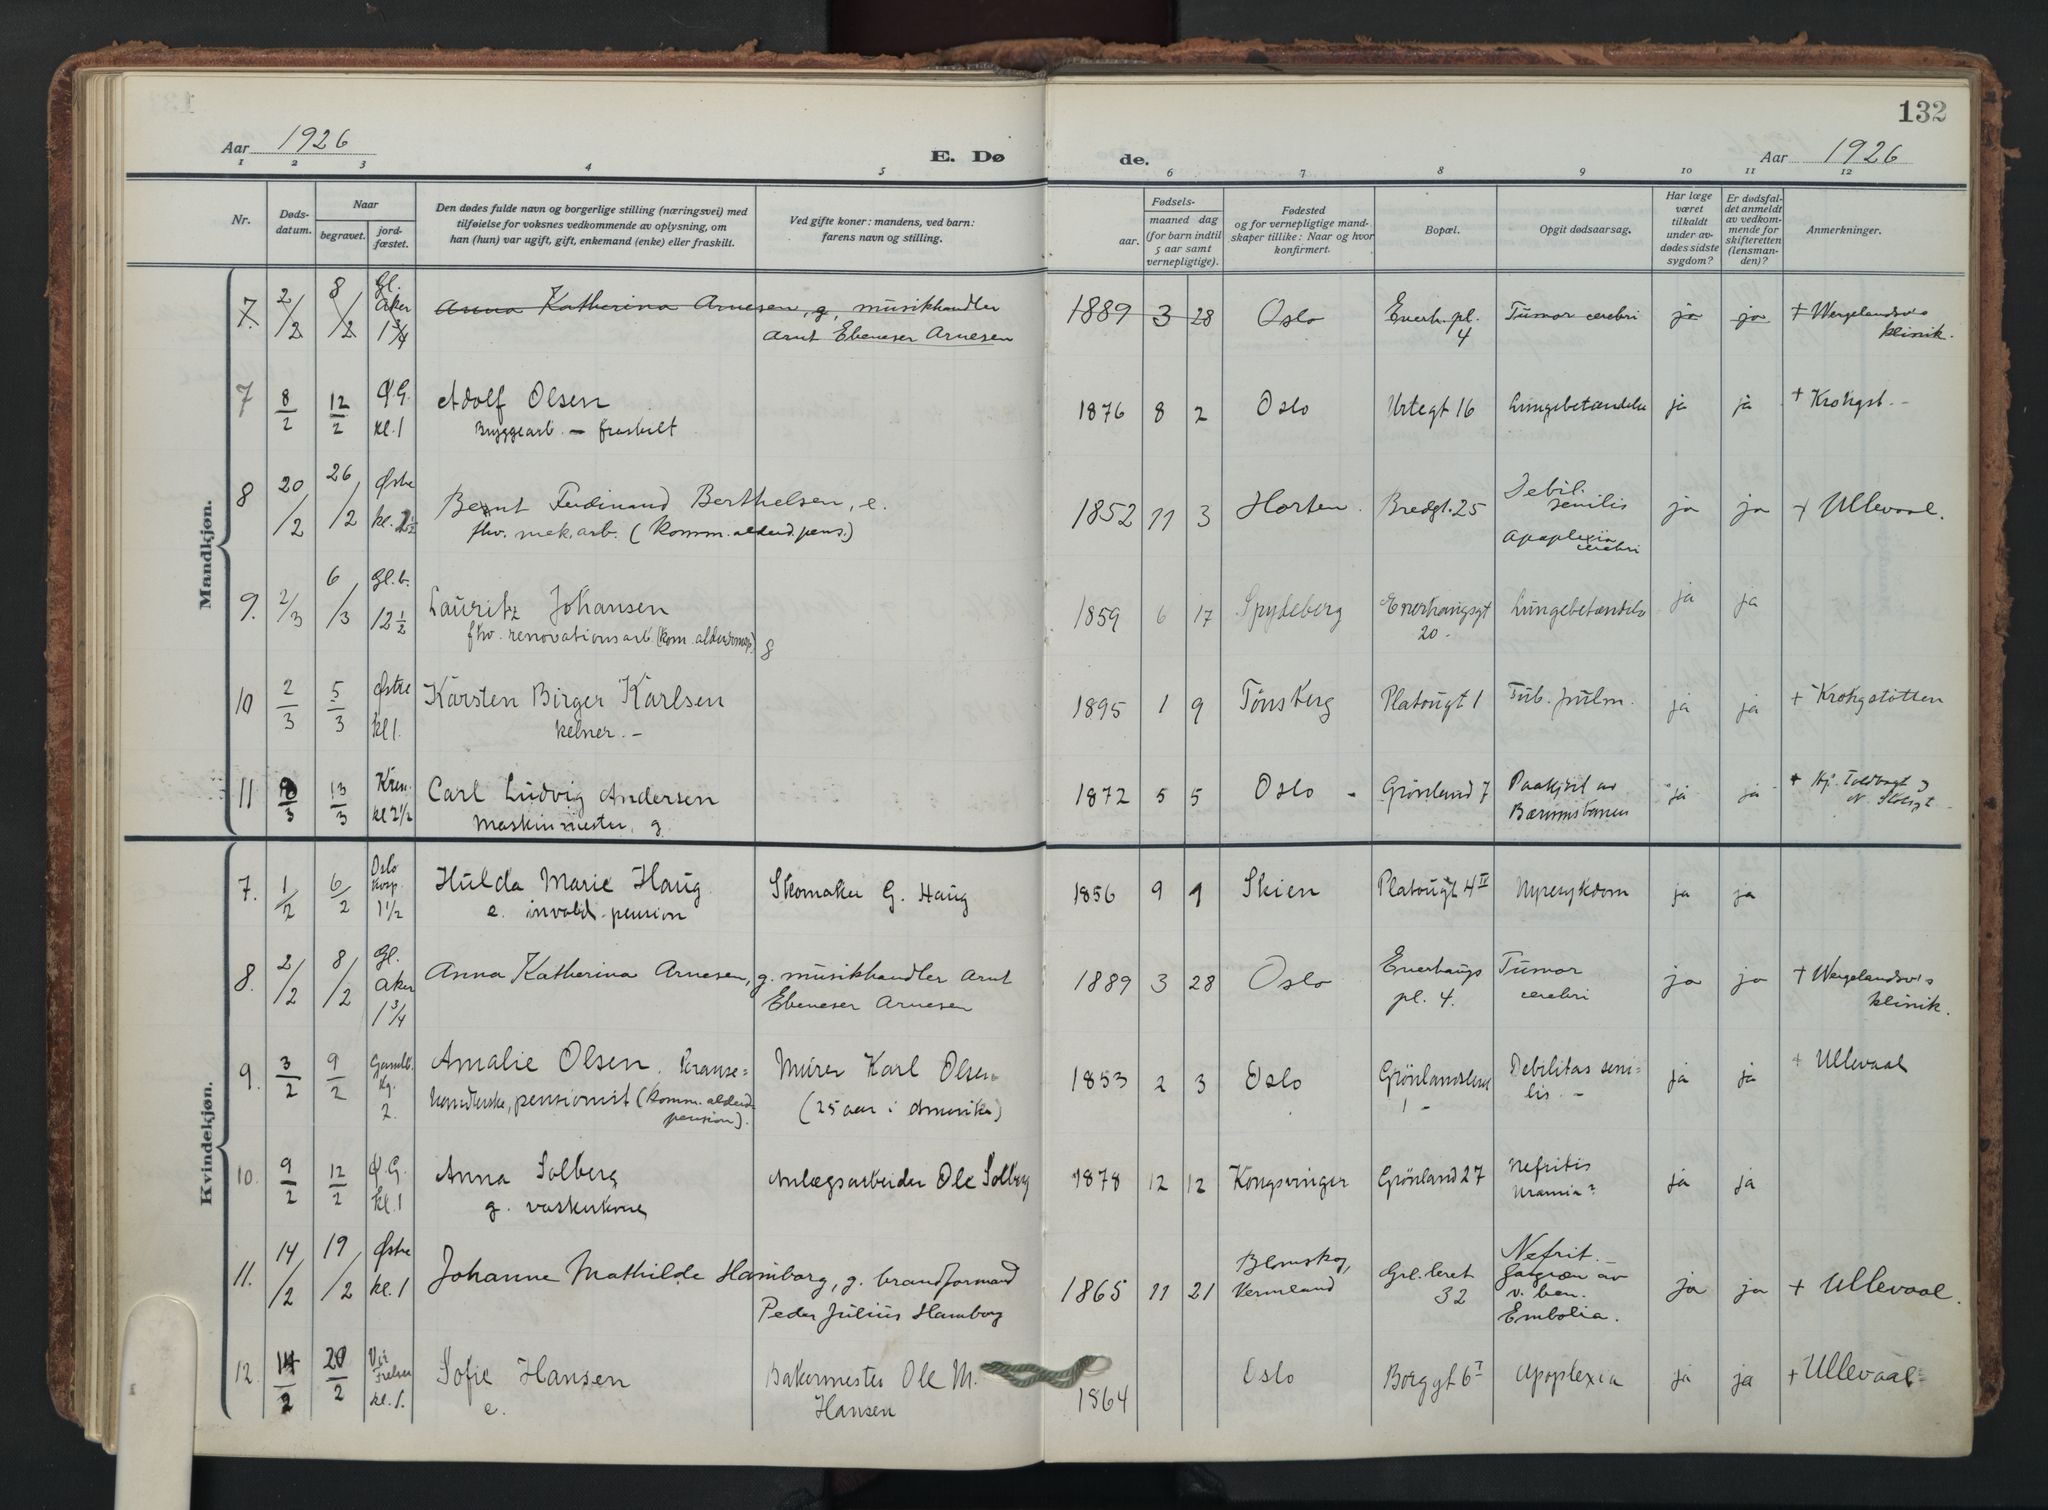 132
Aar 1926
E. Dø de.
Aar 1926
1 2 3 4 5 6 7 8 9 10 11 12
Nr.
Døds-datum.
Naar
begravet.
jord-fæstet.
Den dødes fulde navn og borgerlige stilling (næringsvei) med
tilføielse for voksnes vedkommende av oplysning, om
han (hun) var ugift, gift, enkemand (enke) eller fraskilt.
Ved gifte koner: mandens, ved barn:
farens navn og stilling.
Fødsels-
aar.
maaned dag
(for barn indtil
5 aar samt
vernepligtige).
Fødested
og for vernepligtige mand-
skaper tillike: Naar og hvor
konfirmert.
Bopæl.
Opgit dødsaarsag.
Har læge
været
tilkaldt
under av-
dødes sidste
sygdom?
Er dødsfal-
det anmeldt
av vedkom-
mende for
skifteretten
(lensman-
den)?
Anmerkninger.
Mandkjøn.
7. 2/2 8/2 Gl. Aker 1 3/4 Anna Katherina Arnesen, g, musikhandler 1889 3 28 Oslo Enerh. pl. 4 Tumor cerebri ja ja + Wergelandsv's klinik.
Arnt Ebeneser Arnesen
7 8/2 12/2 Ø.G. kl. 1 Adolf Olsen 1876 8 2 Oslo Urtegt 16 Lungebetændelse ja ja + Krohgst. -
Bryggearb. - fraskilt
8 20/2 26/2 Østre Bernt Ferdinand Berthelsen, e. 1852 11 3 Horten. Bredgt. 25 Debil. senilis apoplexia cerebri ja ja + Ullevaal.
fhv. mek. arb. (komm. alderd. pens.)
9. 2/3 6/3 Gl. b. 12 1/2 Lauritz Johansen 1859 6 17 Spydeberg Enerhaugsgt 20 - Lungebetændelse ja ja
fhv. renovationsarb. g
10 2/3 5/3 Østre kl 1. Karsten Birger Karlsen 1895 1 9 Tønsberg Platougt 1 Tub. pulm. ja ja + Krohgstøtten
kelner. -
11 3 13/3 Krem. kl 2 1/2 Carl Ludvig Andersen 1872 5 5 Oslo - Grønland 7 Paakjørt av Bærumsbanen ja ja + Hj. Toldbogt
Maskinmester, g.
Kvindekjøn.
7. 1/2 6/2 Oslo Hosp. 1 1/2 Hulda Marie Haug Skomaker G. Haug 1856 9 9 Skien Platougt 4 IV Nyresykdom ja ja
e. invalid. pension
8. 2/2 8/2 Gl. Aker 1 3/4 Anna Katherina Arnesen, g. musikhandler Arnt 1889 3 28 Oslo Enerhaugs pl. 4. Tumor cerebri ja ja + Wergelandsv's klinik.
Ebeneser Arnesen
9. 3/2 9/2 Gamleb. Kg. 2. Amalie Olsen. Kranse= Murer Karl Olsen 1853 2 3 Oslo 1 - Debilitas seni= lis. - ja ja + Ullevaal
handlerske, pensionist (komm. alderd. pension). (25 aar i Amerika)
10. 9/2 12/2 Ø.G. kl. 1 Anna Solberg Anlægsarbeider Ole Solberg 1878 12 12 Kongsvinger Grønland 27 Nefritis Uræmia? ja ja
g. vaskerkone
11. 14/2 19/2 Østre kl. 1 Johanne Mathilde Hamborg, g. brandformand 1865 11 21 Blomskog, Vermland Grl. leret 32 Nefrit. Gangræn av v. ben. Embolia. ja ja + Ullevaal.
Peder Julius Hamborg
12. 14/2 20/2 Vår Frelser kl. 1. Sofie Hansen Bakermester Ole M. 1864 Oslo Borggt 6 I Apoplexia ja ja + Ullevaal
e. Hansen